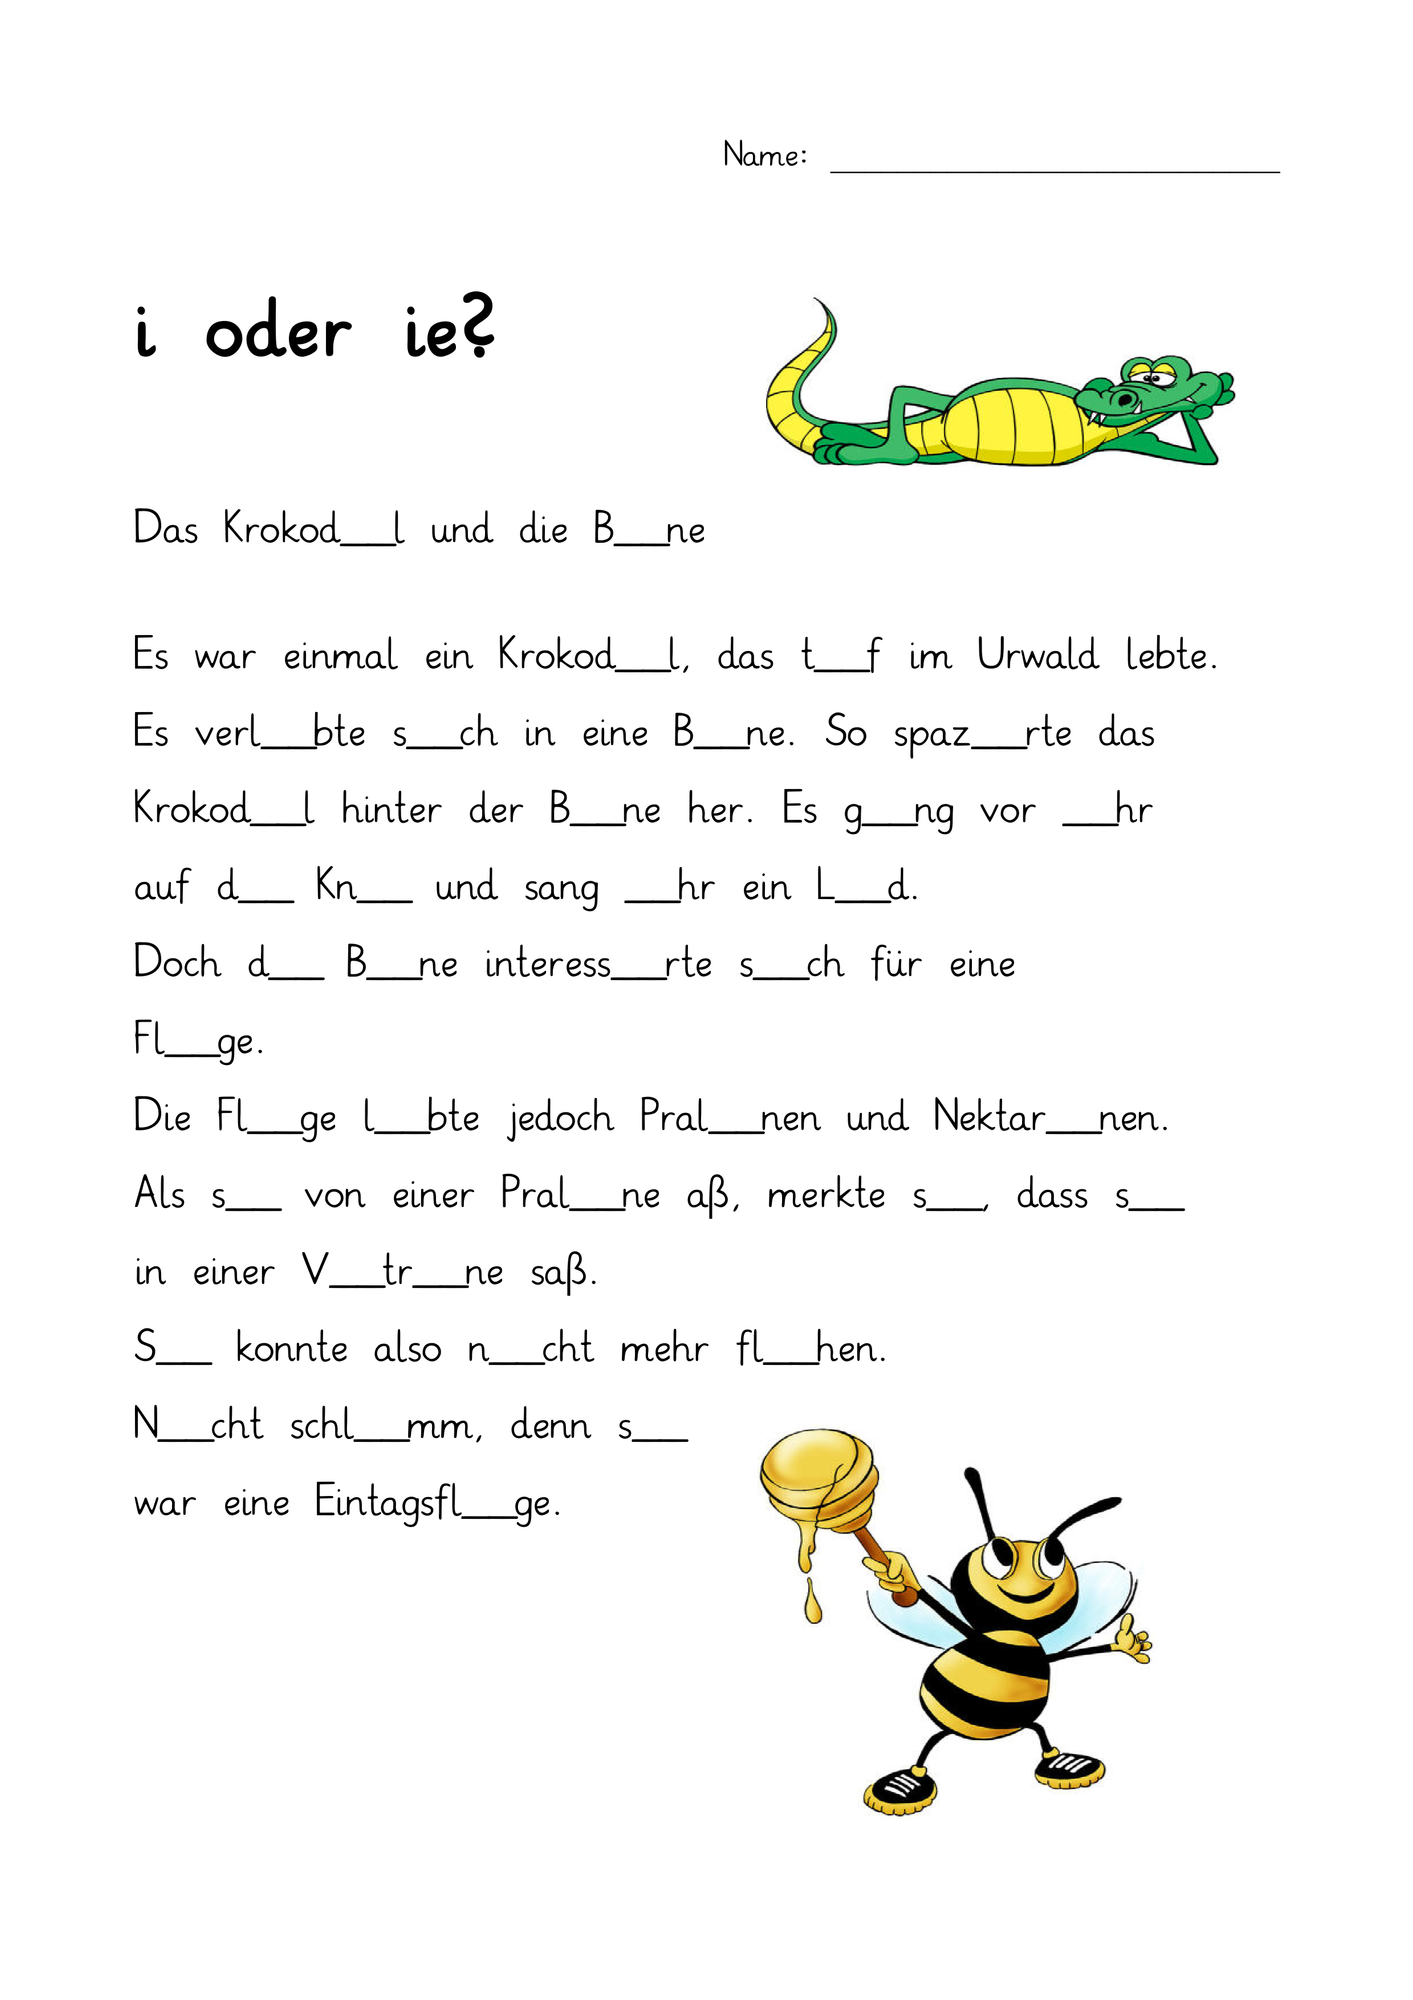 Name: ___
i oder ie?
Das Krokod__l und die B__ne
Es war einmal ein Krokod__l, das t__f im Urwald lebte.
Es verl__bte s__ch in eine B__ne. So spaz__rte das
Krokod__l hinter der B__ne her. Es g__ng vor __hr
auf d__ Kn__ und sang __hr ein L__d.
Doch d__ B__ne interess__rte s__ch für eine
Fl__ge.
Die Fl__ge l__bte jedoch Pral__nen und Nektar__nen.
Als s__ von einer Pral__ne aß, merkte s__, dass s__
in einer V__tr__ne saß.
S__ konnte also n__cht mehr fl__hen.
N__cht schl__mm, denn s__
war eine Eintagsfl__ge.